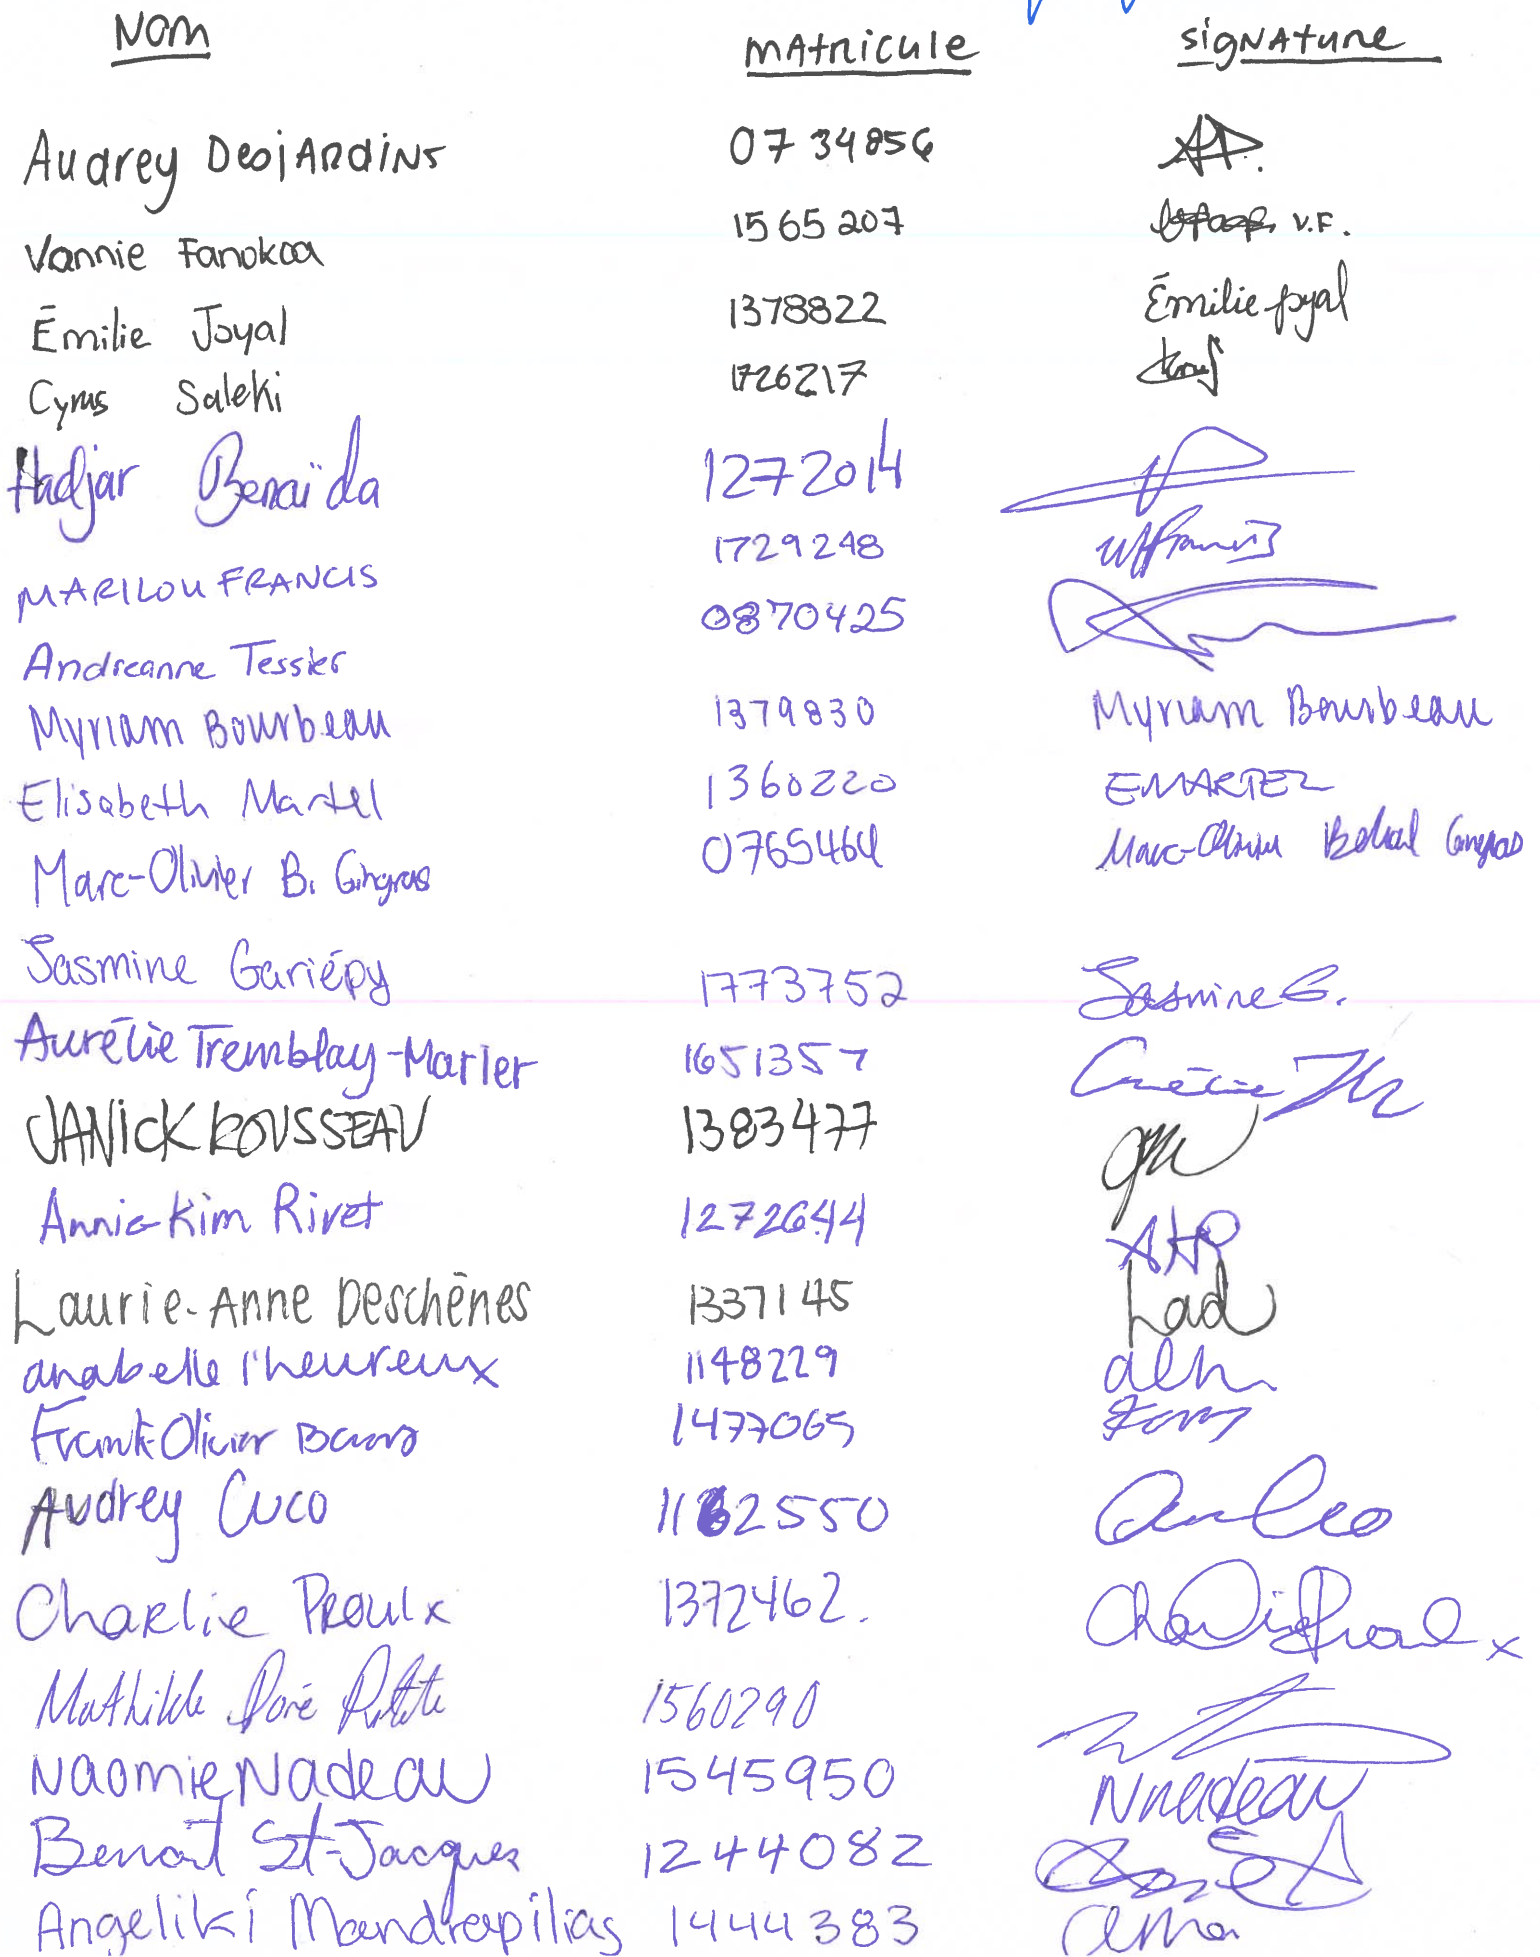 Nom matricule signature
Audrey Desjardins 0734856 AD.
Vannie Fanokoa 1565207 V.F.
Émilie Joyal 1378822 Émilie Joyal
Cyrus Saleki 1726217
Hadjar Benaïda 1272014
MARILOU FRANCIS 1729248 MFrancis
Andreanne Tessier 0870425
Myriam Bourbeau 1379830 Myriam Bourbeau
Elisabeth Martel 1360220 EMARTEL
Marc-Olivier B. Gingras 0765464 Marc-Olivier Gingras
Jasmine Gariépy 1773752 Jasmine G.
Aurélie Tremblay-Marier 1651357 Aurélie
JANICK ROUSSEAU 1383477
Annie-Kim Rivet 1272644 AKR
Laurie-Anne Deschênes 1337145 Lad
anabelle l'heureux 1148229 alh
Frank-Olivier 1477065
Audrey Cuco 1162550
Charlie Proulx 1372462. Charlie Proulx
Mathilde Doré 1560290
Naomie Nadeau 1545950 NNadeau
Benoit St-Jacques 1244082
Angeliki Mandrapilias 1444383